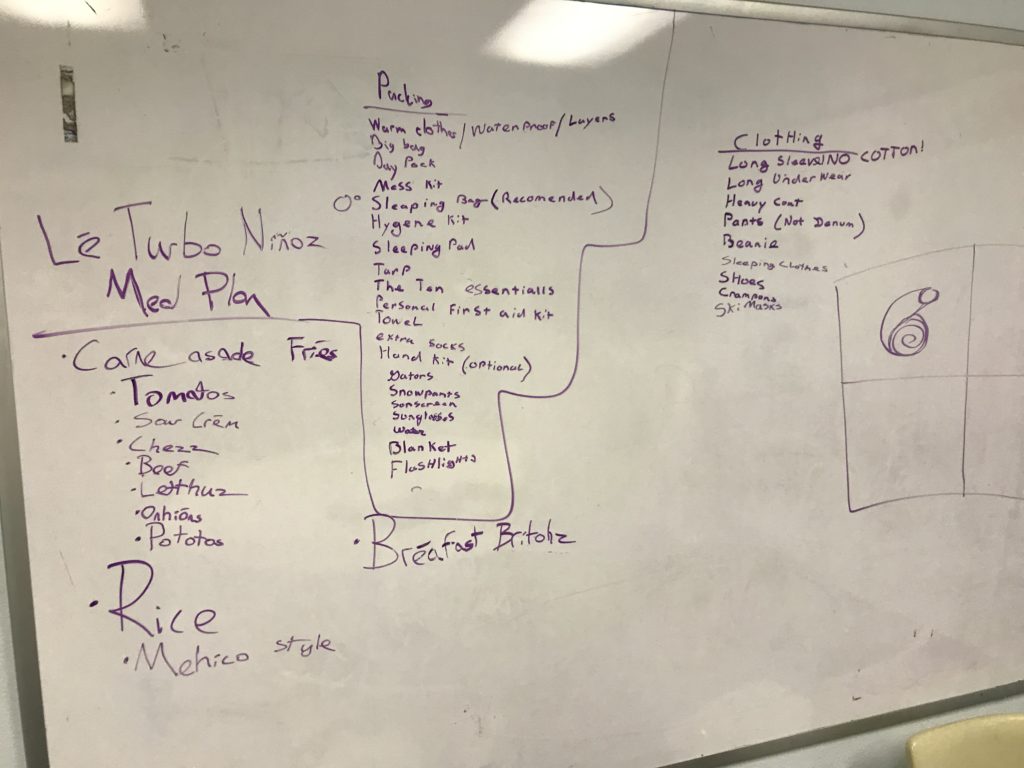 Lē Turbo Niñoz
Meel Plan
• Carne asade Friēs
• Tomatos
- Sour Crēm
• Chezz
• Beef
• Letthuz
• Onhiōns
• Pototos
• Rice
• Mehico style
Packing
Warm clothes/Waterproof/Layers
Big bag
Day Pack
Mess Kit
Sleaping Bag (Recomended)
Hygene Kit
Sleeping Pad
Tarp
The Ten essentialls
Personal First aid kit
Towel
extra socks
Hand Kit (optional)
Gators
Snowpants
Sonscreen
Sunglasses
Water
Blanket
Flashlights
• Brēafast Britohz
Clothing
Long Sleevs/NO COTTON!
Long Underwear
Heavy Coat
Pants (Not Denum)
Beanie
Sleeping Clothes
Shoes
Crampons
Ski Masks